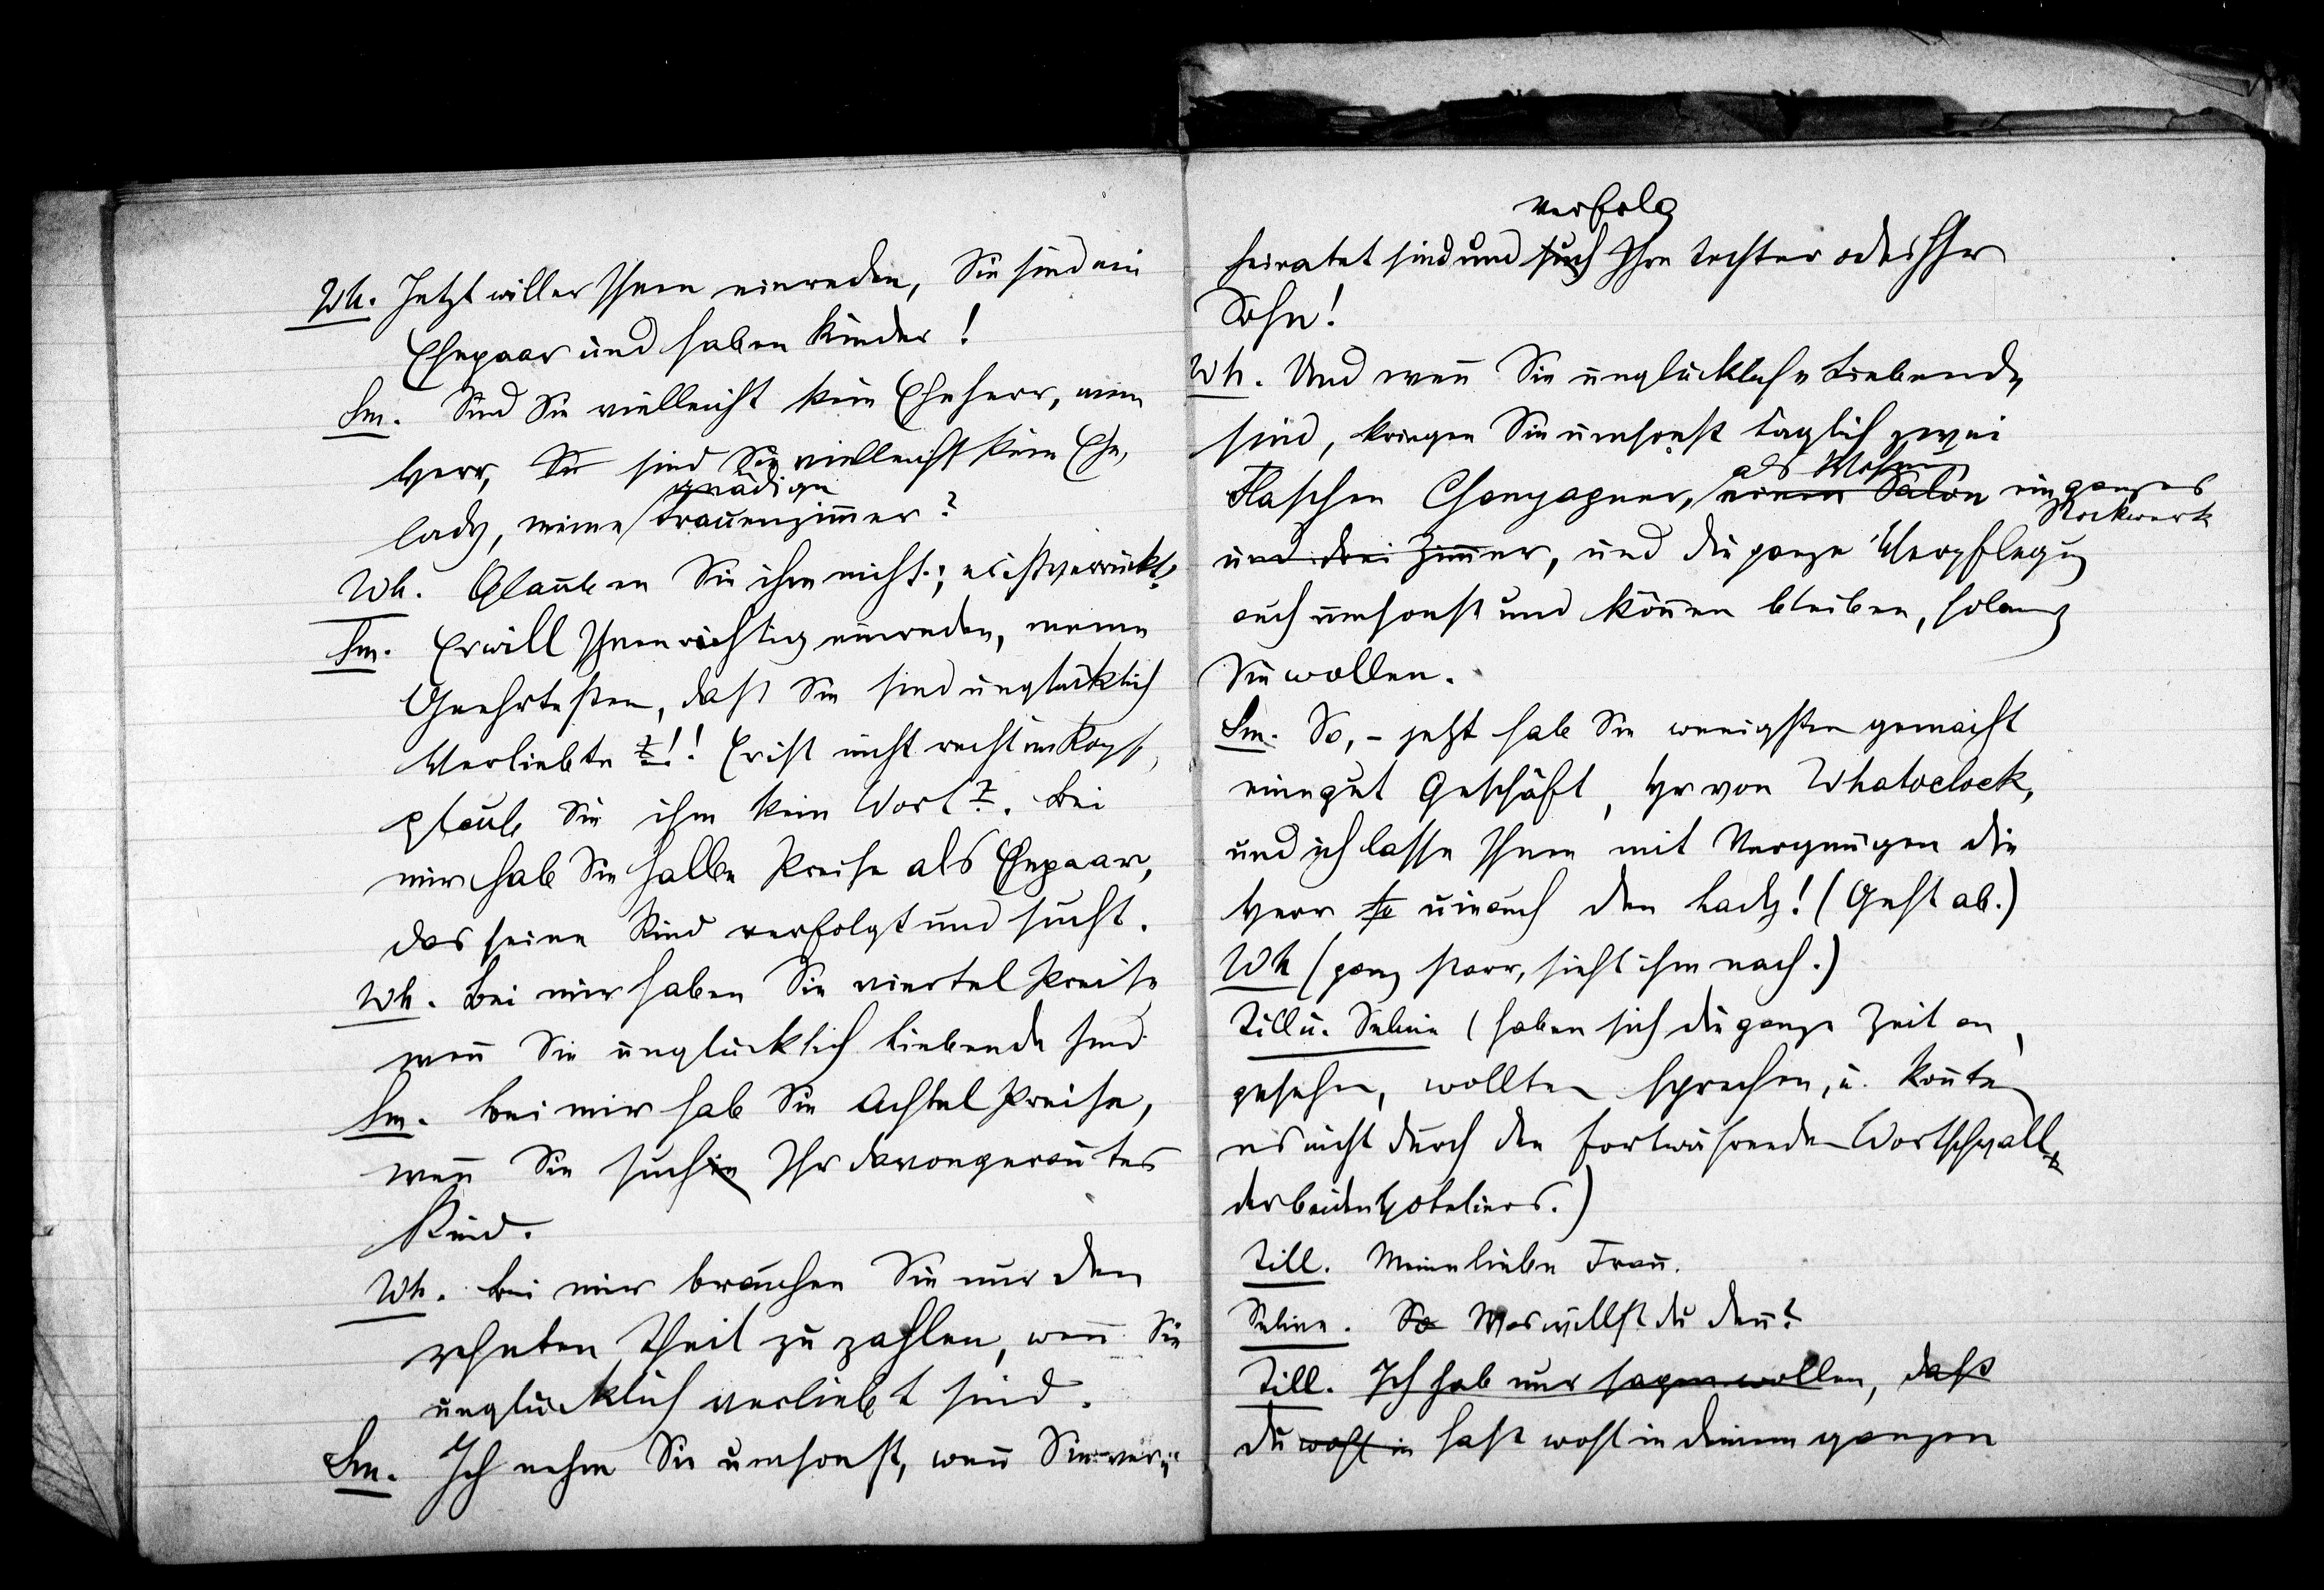 Wh. Jetzt will er Ihnen einreden, Sie sind ein
Ehepaar und haben Kinder!
Sm. Sind Sie vielleicht kein Eheherr, mein
Herr, Sie sind Sie vielleicht keine Ehe,
gnädige
lady, meine Frauenzimmer?
Wh. Glauben Sie ihm nicht; er ist verrückt.
Sm. Er will Ihnen richtig einreden, meine
Geehrtesten, daß Sie sind unglücklich
Verliebte!! Er ist nicht recht im Kopf,
glaub Sie ihm kein Wort. Bei
mir hab Sie halbe Preise als Ehepaar,
das seine Kind verfolgt und sucht.
Wh. Bei mir haben Sie viertel Preise
wenn Sie unglücklich Liebende sind.
Sm. Bei mir hab Sie Achtel Preise,
wenn Sie suchen Ihr davongeranntes
Kind.
Wh. Bei mir brauchen Sie nur den
zehnten Theil zu zahlen, wenn Sie
unglücklich verliebt sind.
Sm. Ich nehm Sie umsonst, wenn Sie ver-
verfolg
heiratet sind und such Ihre Tochter oder Ihr
Sohn!
Wh. Und wenn Sie unglückliche Liebende
sind, kriegen Sie umsonst täglich zwei
als Wohnung
Flaschen Champagner, einen Salon ein ganzes
Stockwerk
und drei Zimmer, und die ganze Verpflegung
auch umsonst und können bleiben, solang
Sie wollen.
Sm. So, – jetzt hab Sie wenigsten gemacht
eine gut Geschäft, Hr von Whatoclock,
und ich lasse Ihnen mit Vergnügen die
Herr wie auch den Lady! (Geht ab.)
Wh (ganz starr, sieht ihm nach.)
Till u. Seline (haben sich die ganze Zeit an
gesehen, wollten sprechen, u. konnten
es nicht durch den fortwährenden Wortschwall
der beiden Hoteliers.)
Till. Meine liebe Frau.
Seline. So Was willst du denn?
Till. Ich hab nur sagen wollen, daß
du wohl in hast wohl in deinem ganzen